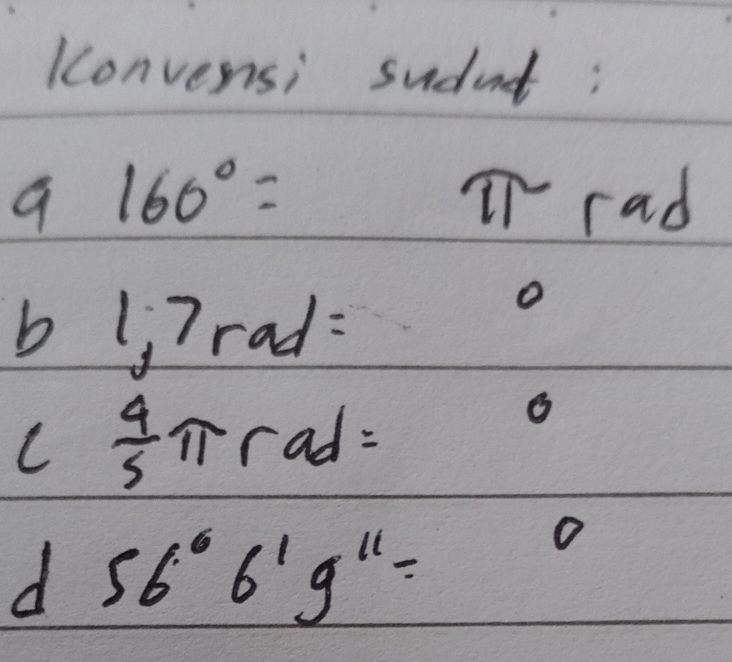 Konversi sudut :
a 160° = π rad
b 1,7 rad = °
c 4/5 π rad = °
d 56° 6' 9" = °